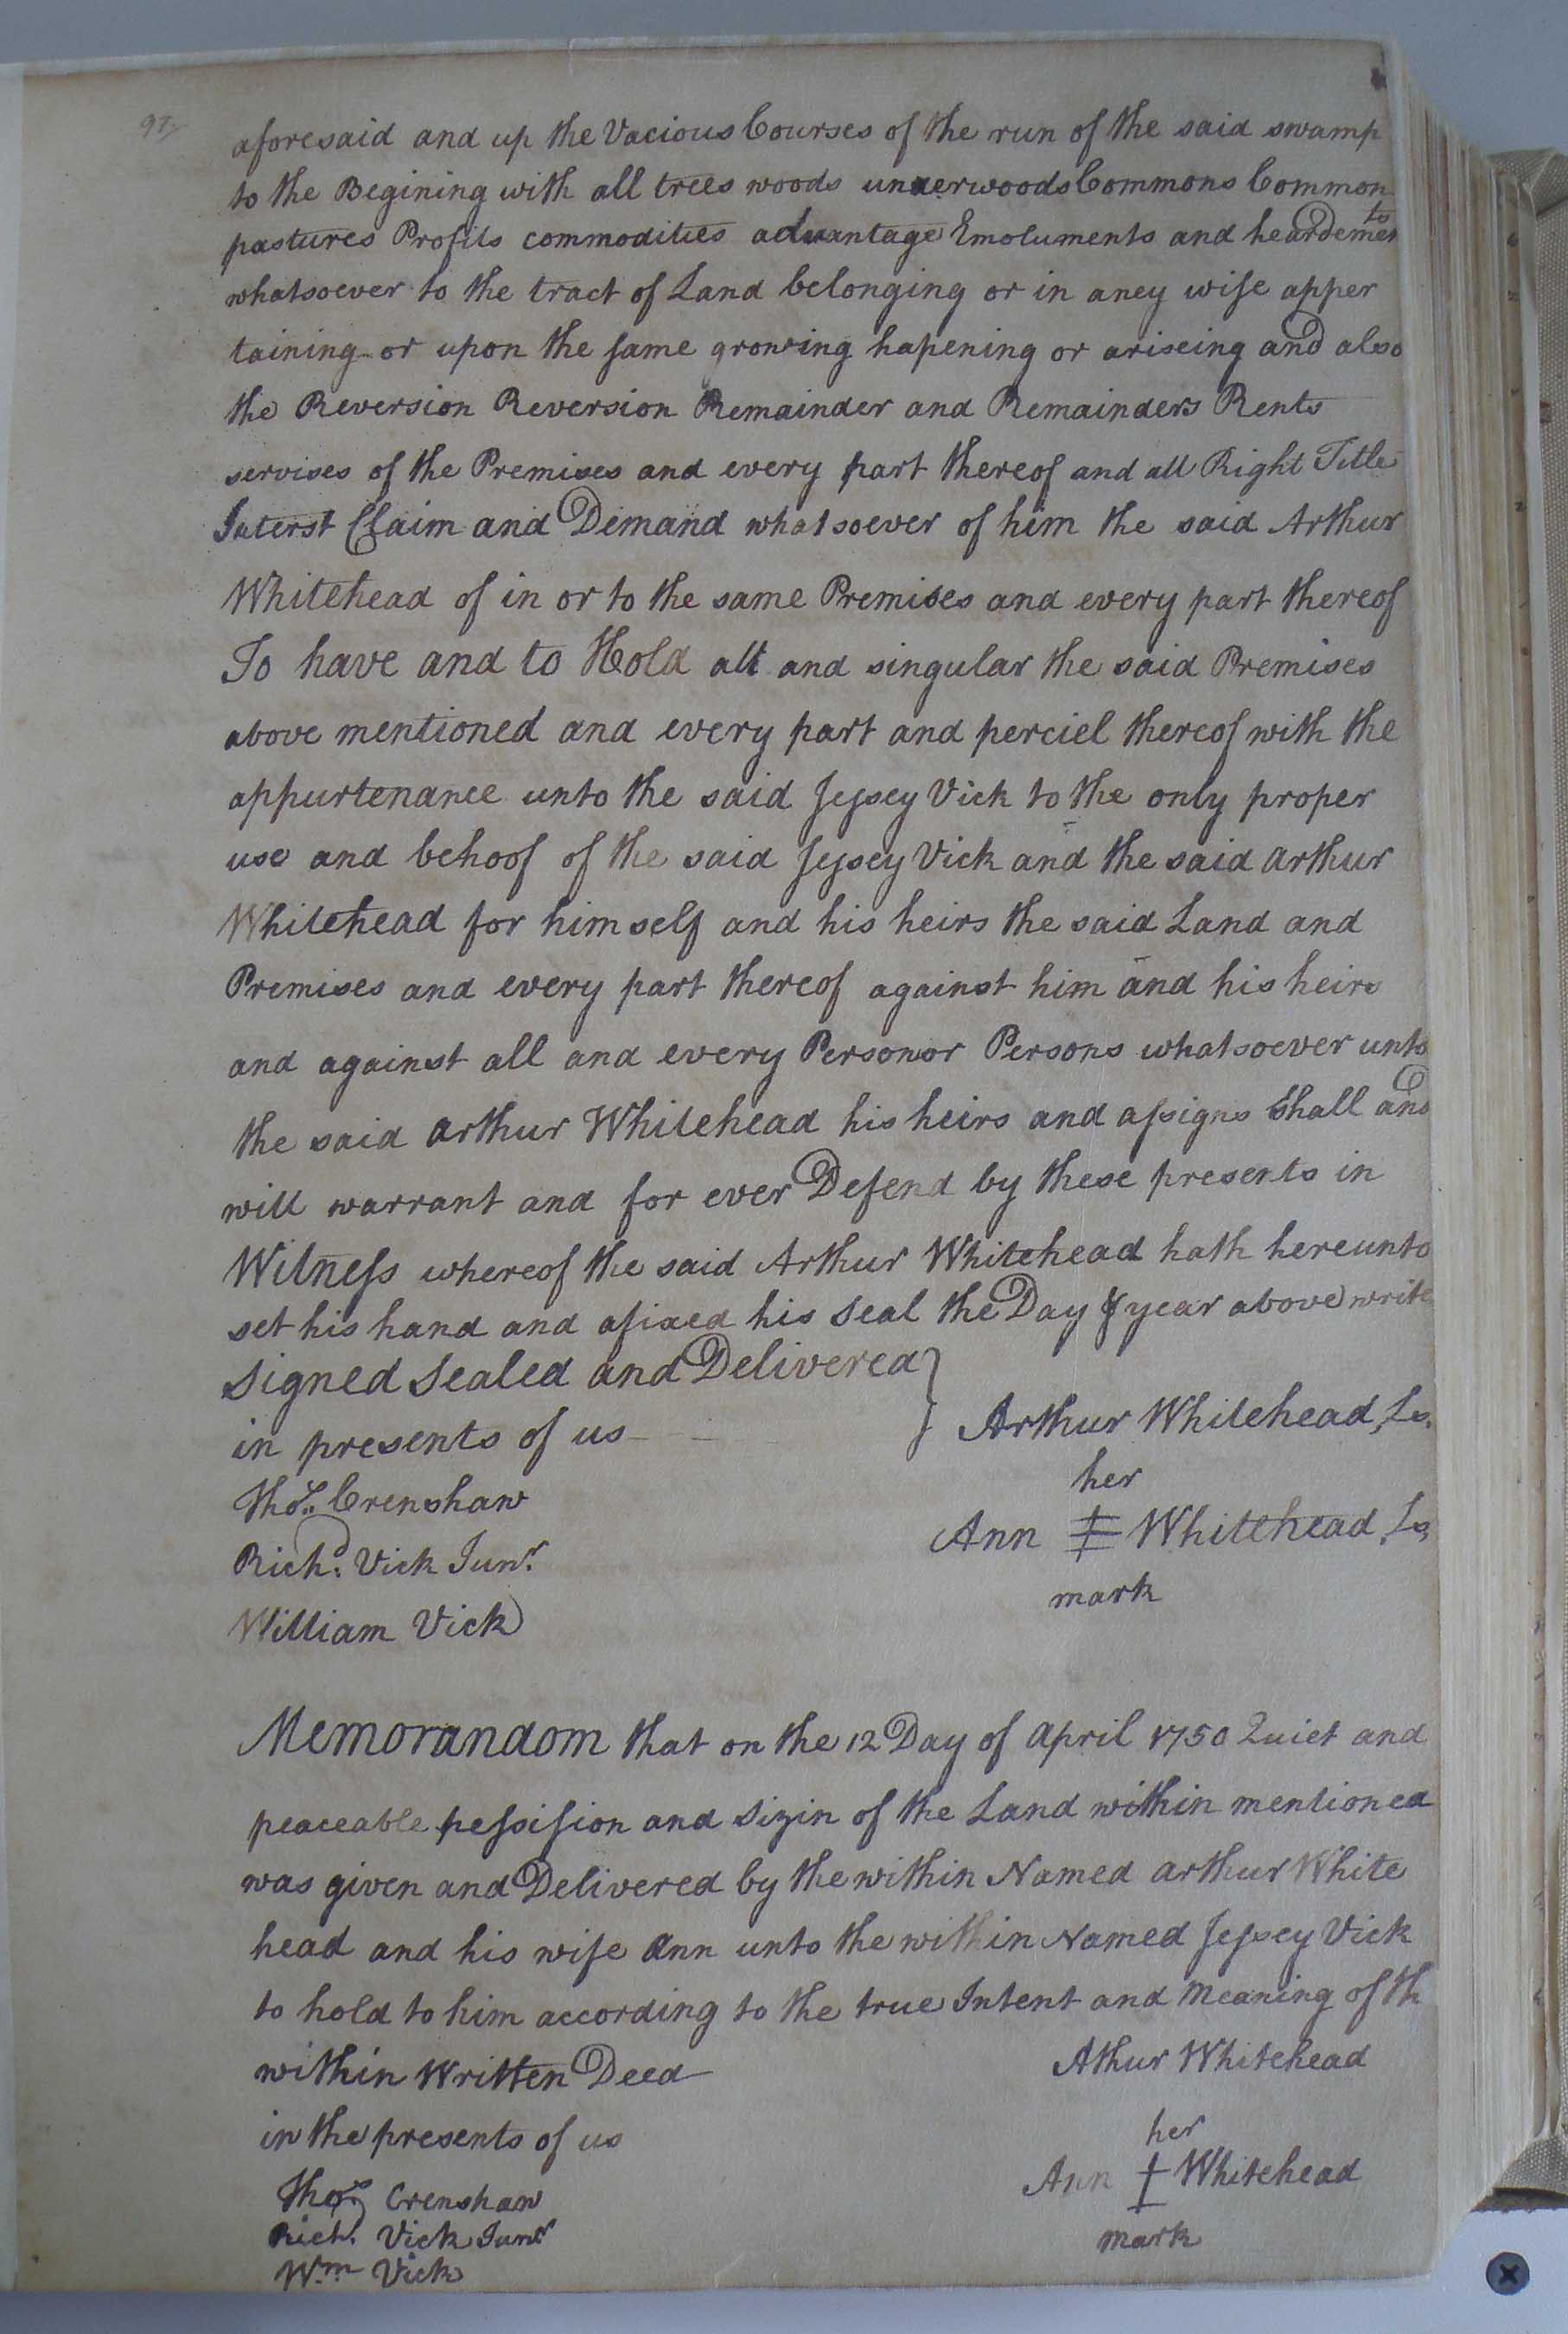 97
aforesaid and up the Vacious Courses of the run of the said swamp
to the Begining with all trees woods underwoods Commons Common
pastures Profits commodities advantage Emoluments and heardements
whatsoever to the tract of Land belonging or in aney wise apper
taining or upon the same growing hapening or ariseing and also
the Reversion Reversion Remainder and Remainders Rents
servises of the Premises and every part thereof and all Right Title
Interst Claim and Demand whatsoever of him the said Arthur
Whitehead of in or to the same Premises and every part thereof
To have and to Hold all and singular the said Premises
above mentioned and every part and perciel thereof with the
appurtenance unto the said Jessey Vick to the only proper
use and behoof of the said Jessey Vick and the said arthur
Whitehead for himself and his heirs the said Land and
Premises and every part thereof against him and his heirs
and against all and every Person or Persons whatsoever unto
the said arthur Whitehead his heirs and assigns Shall and
will warrant and for ever Defend by these presents in
Witness whereof the said Arthur Whitehead hath hereunto
set his hand and afixed his Seal the Day & year above write
Signed Sealed and Delivered
in presents of us
Arthur Whitehead, Ls.
Thos. Crenshaw
her
Ann Whitehead, Ls,
mark
Richd. Vick Junr.
William Vick
Memorandom that on the 12 Day of April 1750 Quiet and
peaceable pessission and Sizin of the Land within mentioned
was given and Delivered by the within Named arthur White
head and his wife Ann unto the within Named Jessey Vick
to hold to him according to the true Intent and Meaning of th
within Written Deed
Athur Whitehead
in the presents of us
her
Ann Whitehead
mark
Thos. Crenshaw
Rich. Vick Junr
Wm Vick